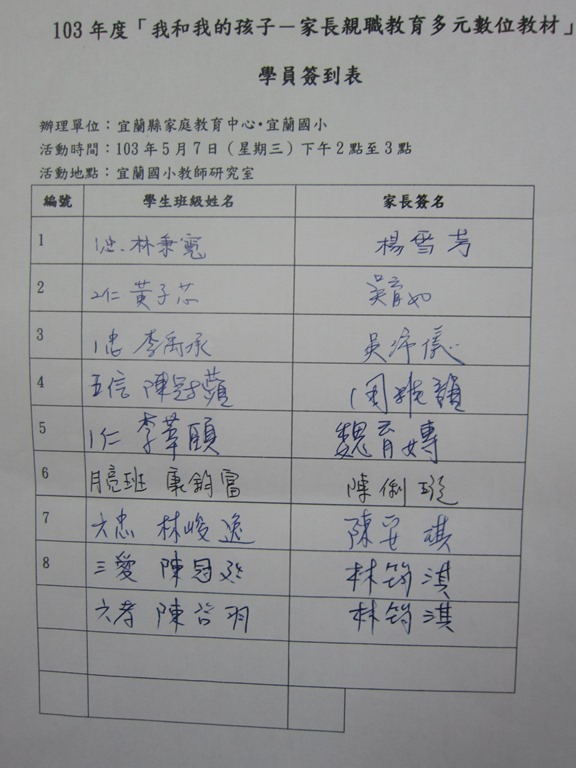 103年度「我和我的孩子－家長親職教育多元數位教材」
學員簽到表
辦理單位：宜蘭縣家庭教育中心‧宜蘭國小
活動時間：103年5月7日（星期三）下午2點至3點
活動地點：宜蘭國小教師研究室
編號 學生班級姓名 家長簽名
1 1忠 林秉寬 楊雪芳
2 2仁 黃子芯 吳育如
3 1忠 李禹承 吳沛儀
4 五信 陳冠蘋 周雅韻
5 1仁 李葦頤 魏育嫥
6 月亮班 康鈞富 陳俐璇
7 六忠 林峻逸 陳安淇
8 三愛 陳冠 林筠淇
六孝 陳 羽 林筠淇